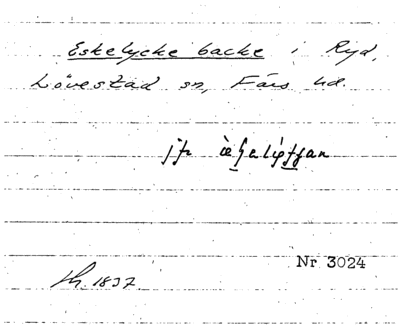 Eskelycke backe i Ryd,
Lövestad sn, Färs hd.
jfr
Nr 3024
1837